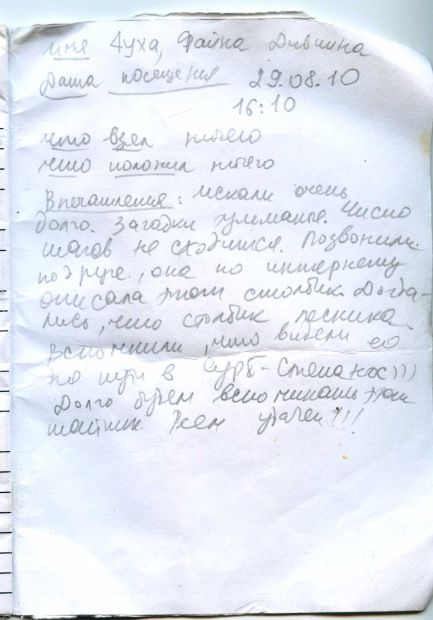 имя Чуха, Фаина Дивнина
Дата посещения 29.08.10
16:10
что взял ничего
что положил ничего
Впечатления: искали очень
долго. Загадки туманные. Число
шагов не сходится. Позвонили
подруге, она по интернету
описала этот столбик. Догда-
лись, что столбик лесника.
вспомнили, что видели его
по пути в Сурб-Степанос)))
Долго будем вспоминать этот
тайник. Всем удачи!!!